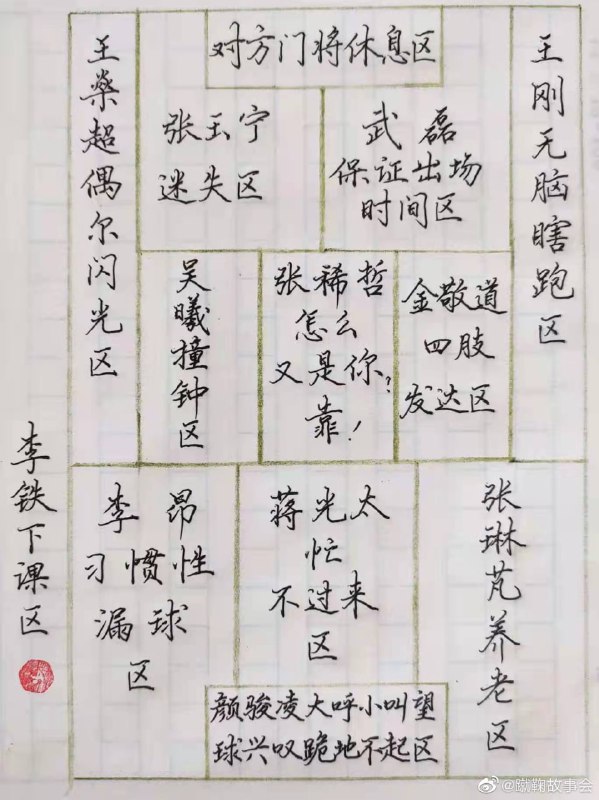 对方门将休息区
王燊超偶尔闪光区
张玉宁
迷失区
武磊
保证出场
时间区
王刚无脑瞎跑区
吴曦撞钟区
张稀哲
怎么
又是你?
靠!
金敬道
四肢
发达区
李铁下课区
李昂
习惯性
漏球
区
蒋光太
忙
不过来
区
张琳芃养老区
颜骏凌大呼小叫望
球兴叹跪地不起区
@蹴鞠故事会